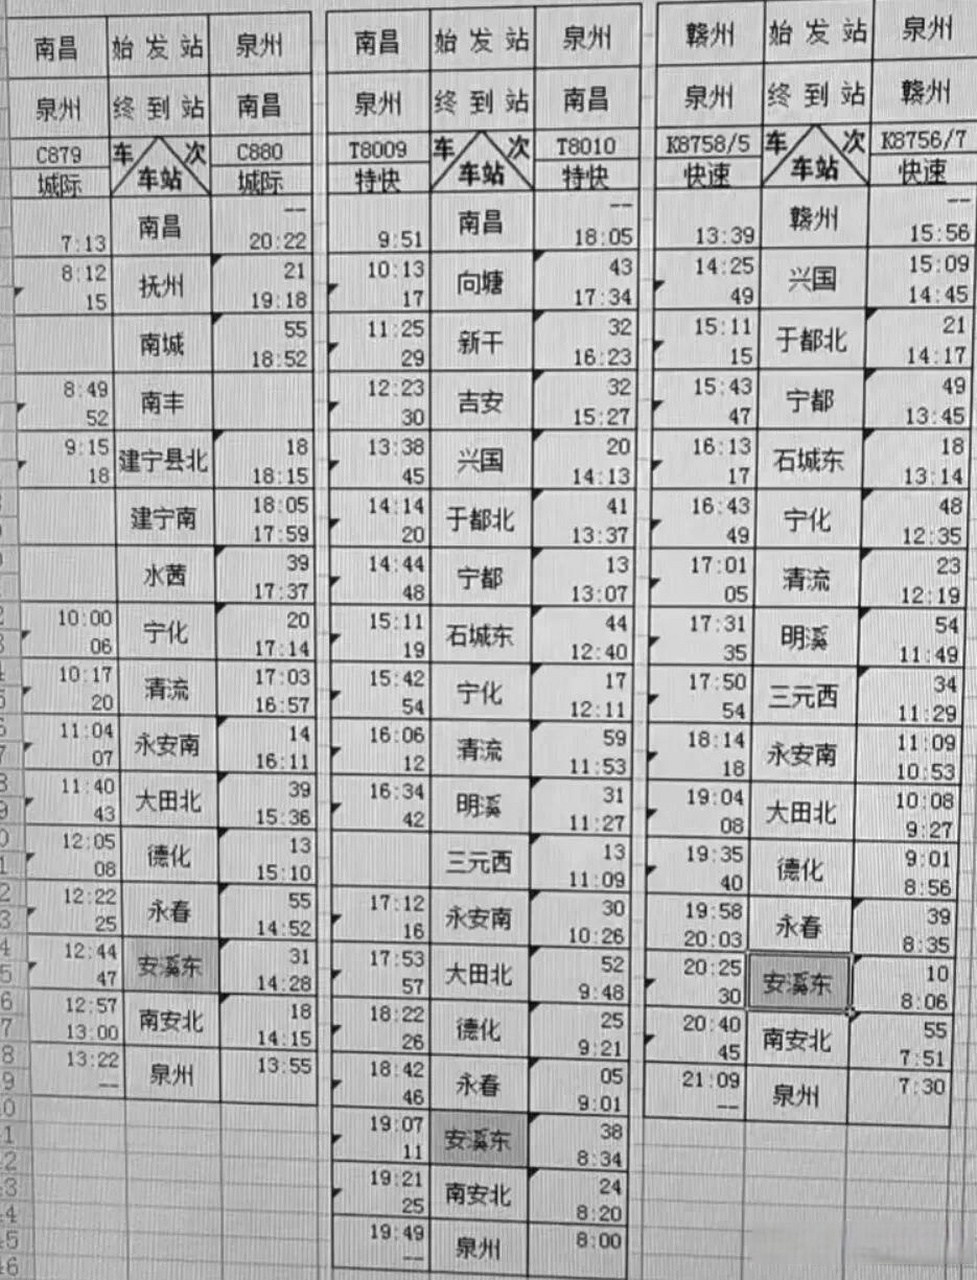 南昌 始发站 泉州 南昌 始发站 泉州 赣州 始发站 泉州
泉州 终到站 南昌 泉州 终到站 南昌 泉州 终到站 赣州
C879 车次 C880 T8009 车次 T8010 K8758/5 车次 K8756/7
城际 车站 城际 特快 车站 特快 快速 车站 快速
南昌 -- 南昌 -- 赣州 --
7:13 20:22 9:51 18:05 13:39 15:56
8:12 抚州 21 10:13 向塘 43 14:25 兴国 15:09
15 19:18 17 17:34 49 14:45
南城 55 11:25 新干 32 15:11 于都北 21
18:52 29 16:23 15 14:17
8:49 南丰 12:23 吉安 32 15:43 宁都 49
52 30 15:27 47 13:45
9:15 建宁县北 18 13:38 兴国 20 16:13 石城东 18
18 18:15 45 14:13 17 13:14
建宁南 18:05 14:14 于都北 41 16:43 宁化 48
17:59 20 13:37 49 12:35
水茜 39 14:44 宁都 13 17:01 清流 23
17:37 48 13:07 05 12:19
10:00 宁化 20 15:11 石城东 44 17:31 明溪 54
06 17:14 19 12:40 35 11:49
10:17 清流 17:03 15:42 宁化 17 17:50 三元西 34
20 16:57 54 12:11 54 11:29
11:04 永安南 14 16:06 清流 59 18:14 永安南 11:09
07 16:11 12 11:53 18 10:53
11:40 大田北 39 16:34 明溪 31 19:04 大田北 10:08
43 15:36 42 11:27 08 9:27
12:05 德化 13 三元西 13 19:35 德化 9:01
08 15:10 11:09 40 8:56
12:22 永春 55 17:12 永安南 30 19:58 永春 39
25 14:52 16 10:26 20:03 8:35
12:44 安溪东 31 17:53 大田北 52 20:25 安溪东 10
47 14:28 57 9:48 30 8:06
12:57 南安北 18 18:22 德化 25 20:40 南安北 55
13:00 14:15 26 9:21 45 7:51
13:22 泉州 13:55 18:42 永春 05 21:09 泉州 7:30
-- 46 9:01 --
19:07 安溪东 38
11 8:34
19:21 南安北 24
25 8:20
19:49 泉州 8:00
--